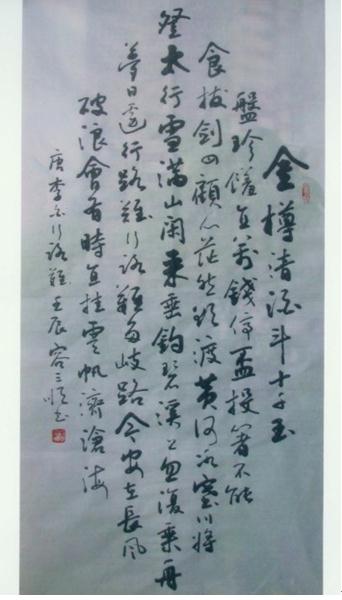 金樽清酒斗十千玉
盤珍饈直萬錢停盃投箸不能
食拔劍四顧心茫然欲渡黄河冰塞川將
登太行雪滿山閑来垂釣碧溪上忽復乘舟
夢日邊行路難行路難多岐路今安在長風
破浪會有時直挂雲帆濟滄海
唐李白行路難壬辰容三順书